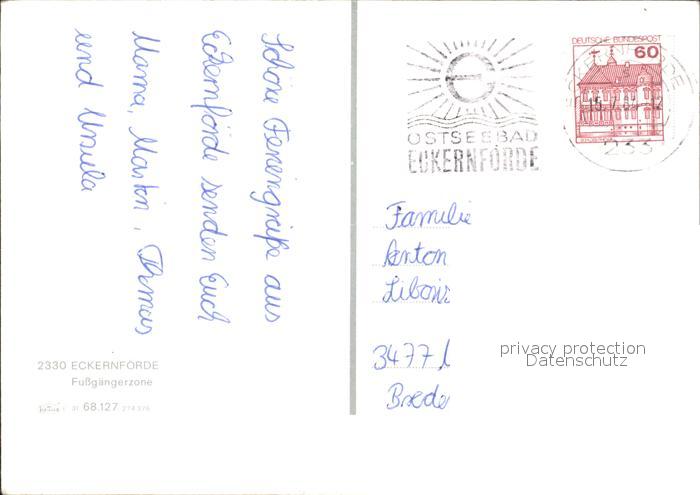 Schöne Feriengrüße aus
Eckernförde senden Euch
Mama, Martin, Thomas
und Ursula
2330 ECKERNFÖRDE
Fußgängerzone
68.127
OSTSEEBAD
ECKERNFÖRDE
DEUTSCHE BUNDESPOST
60
Familie
Anton
3477
Brede
privacy protection
Datenschutz